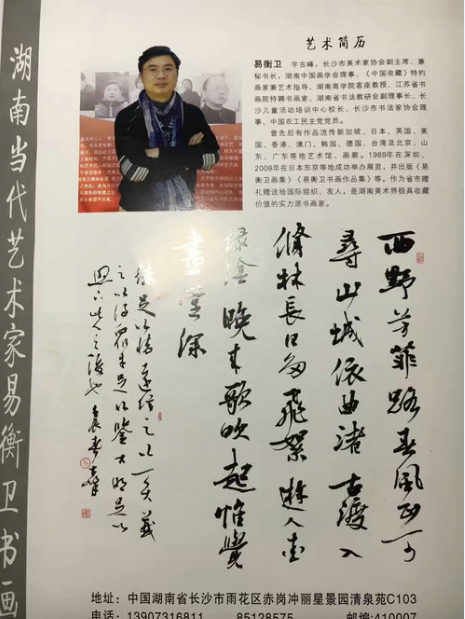 湖南当代艺术家易衡卫书画
艺术简历
易衡卫 字古峰,长沙市美术家协会副主席、兼
秘书长,湖南中国画学会理事、《中国收藏》特约
画家兼艺术指导、湖南商学院客座教授、江苏省书
画院特聘书画家、湖南省书法教研会副理事长、长
沙儿童活动培训中心校长、长沙市书法家协会理
事、中国农工民主党党员。
曾先后有作品流传新加坡、日本、英国、美
国、香港、澳门、韩国、德国、台湾及北京、山
东、广东等地艺术馆、画廊。1989年在深圳、
2008年在日本东京等地成功举办展览,并出版《易
衡卫画集》《易衡卫书画作品集》等。作为省市赠
礼赠送给国际组织、友人,是湖南美术界极具收藏
价值的实力派书画家。
西野芳菲路春风正可
寻山城依曲渚古渡入
修林长日多飞絮游人爱
绿阴晚来歌吹起惟觉
画堂深
地址:中国湖南省长沙市雨花区赤岗冲丽星景园清泉苑C103
电话:13907316811 85128575 邮编:410007